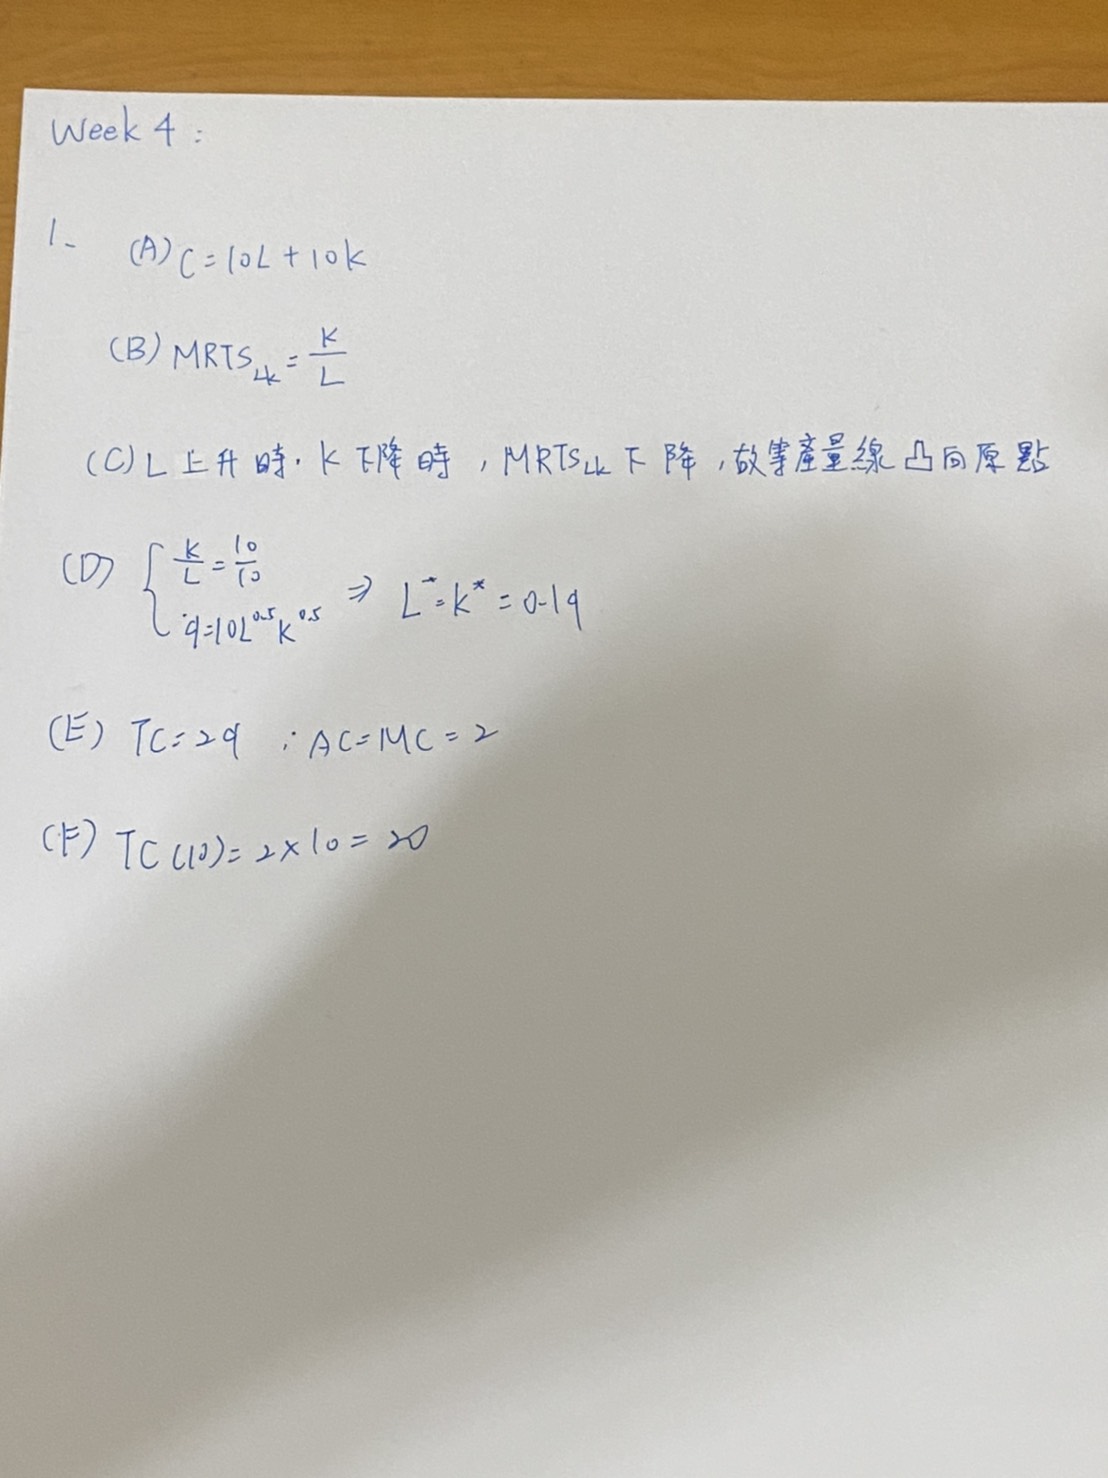 Week 4:
1.
(A) C=10L+10K
(B) MRTS_LK = K/L
(C) L上升時. K下降時, MRTS_LK下降, 故等產量線凸向原點
(D) { K/L = 10/10
q=10L^0.5 K^0.5 ⇒ L*=K*=0.1q
(E) TC=2q ; AC=MC=2
(F) TC(10)=2×10=20